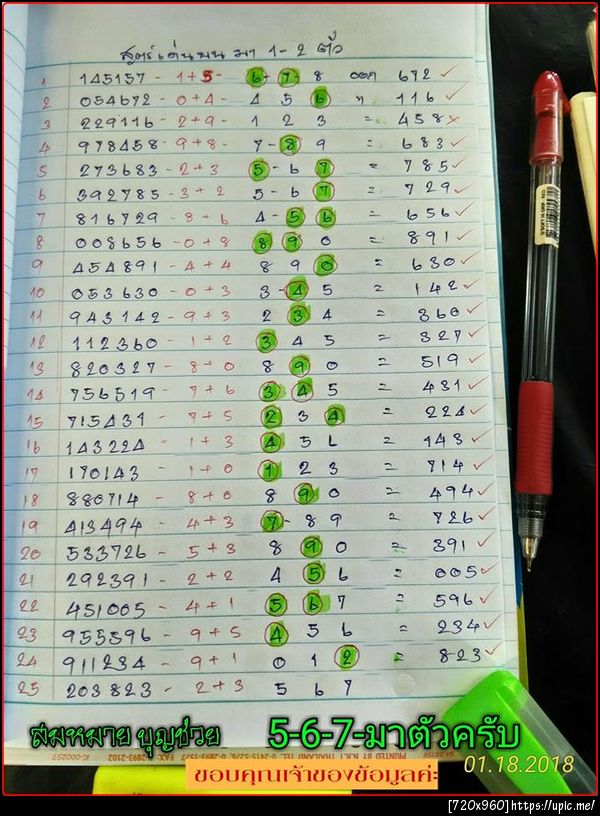 สูตรเด่นบน มา 1-2 ตัว
1 145157 - 1+5 - 6-7-8 ออก 672 ✓
2 054672 - 0+4 - 4 5 6 " 116 ✓
3 229116 - 2+9 - 1 2 3 = 458 ×
4 978458 - 9+8 - 7-8 9 = 683 ✓
5 273683 - 2+3 5-6 7 = 785 ✓
6 392785 - 3+2 5-6 7 = 729 ✓
7 816729 - 8+6 4-5 6 = 656 ✓
8 008656 - 0+8 8 9 0 = 891 ✓
9 454891 - 4+4 8 9 0 = 630 ✓
10 053630 - 0+3 3-4 5 = 142 ✓
11 943142 - 9+3 2 3 4 = 360 ✓
12 112360 - 1+2 3 4 5 = 327 ✓
13 820327 - 8+0 8 9 0 = 519 ✓
14 756519 - 7+6 3 4 5 = 431 ✓
15 715431 - 7+5 2 3 4 = 224 ✓
16 143224 - 1+3 4 5 6 = 143 ✓
17 170143 - 1+0 1 2 3 = 714 ✓
18 880714 - 8+0 8 9 0 = 494 ✓
19 413494 - 4+3 7-8 9 = 726 ✓
20 533726 - 5+3 8 9 0 = 391 ✓
21 292391 - 2+2 4 5 6 = 005 ✓
22 451005 - 4+1 5 6 7 = 596 ✓
23 955596 - 9+5 4 5 6 = 234 ✓
24 911234 - 9+1 0 1 2 = 823 ✓
25 203823 - 2+3 5 6 7
สมหมาย บุญช่วย 5-6-7-มาตัวครับ
ขอบคุณเจ้าของข้อมูลค่ะ
01.18.2018
[720x960]https://upic.me/